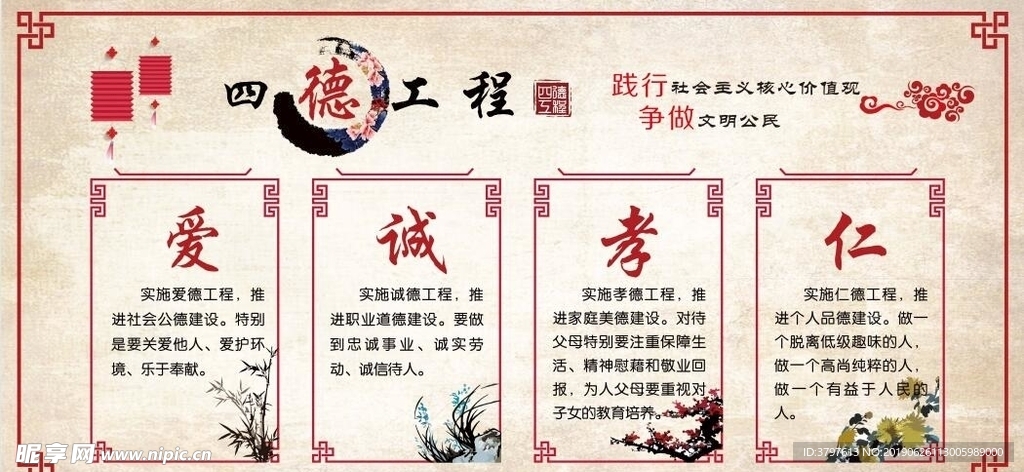 四德工程
四德工程
践行社会主义核心价值观
争做文明公民
爱
实施爱德工程，推
进社会公德建设。特别
是要关爱他人、爱护环
境、乐于奉献。
诚
实施诚德工程，推
进职业道德建设。要做
到忠诚事业、诚实劳
动、诚信待人。
孝
实施孝德工程，推
进家庭美德建设。对待
父母特别要注重保障生
活、精神慰藉和敬业回
报，为人父母要重视对
子女的教育培养。
仁
实施仁德工程，推
进个人品德建设。做一
个脱离低级趣味的人，
做一个高尚纯粹的人，
做一个有益于人民的
人。
昵享网 www.nipic.cn
ID:3797613 NO:20190626113005989000